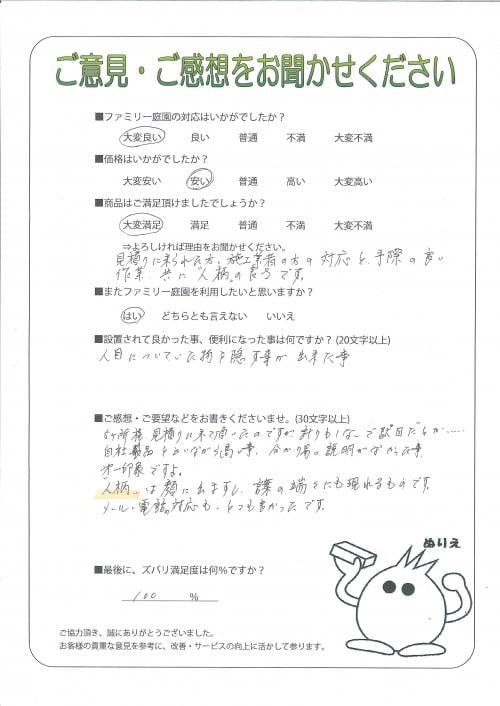 ご意見・ご感想をお聞かせください
■ファミリー庭園の対応はいかがでしたか？
大変良い 良い 普通 不満 大変不満
■価格はいかがでしたか？
大変安い 安い 普通 高い 大変高い
■商品はご満足頂けましたでしょうか？
大変満足 満足 普通 不満 大変不満
⇒よろしければ理由をお聞かせください。
見積りに来られた方、施工業者の方の対応と、手際の良い
作業、共に"人柄"の良さです。
■またファミリー庭園を利用したいと思いますか？
はい どちらとも言えない いいえ
■設置されて良かった事、便利になった事は何ですか？(20文字以上)
人目についていた物を隠す事が出来た事
■ご感想・ご要望などをお書きくださいませ。(30文字以上)
5ヶ所程見積りに来て頂いたのですが
自社製品と 高い事、分かり易い説明がなかった事
オ一印象ですよ。
"人柄"は顔に出ますし、言葉の端々にも現れるものです。
メール・電話の対応も、とても良かったです。
ぬりえ
■最後に、ズバリ満足度は何％ですか？
100 ％
ご協力頂き、誠にありがとうございました。
お客様の貴重な意見を参考に、改善・サービスの向上に活かして参ります。